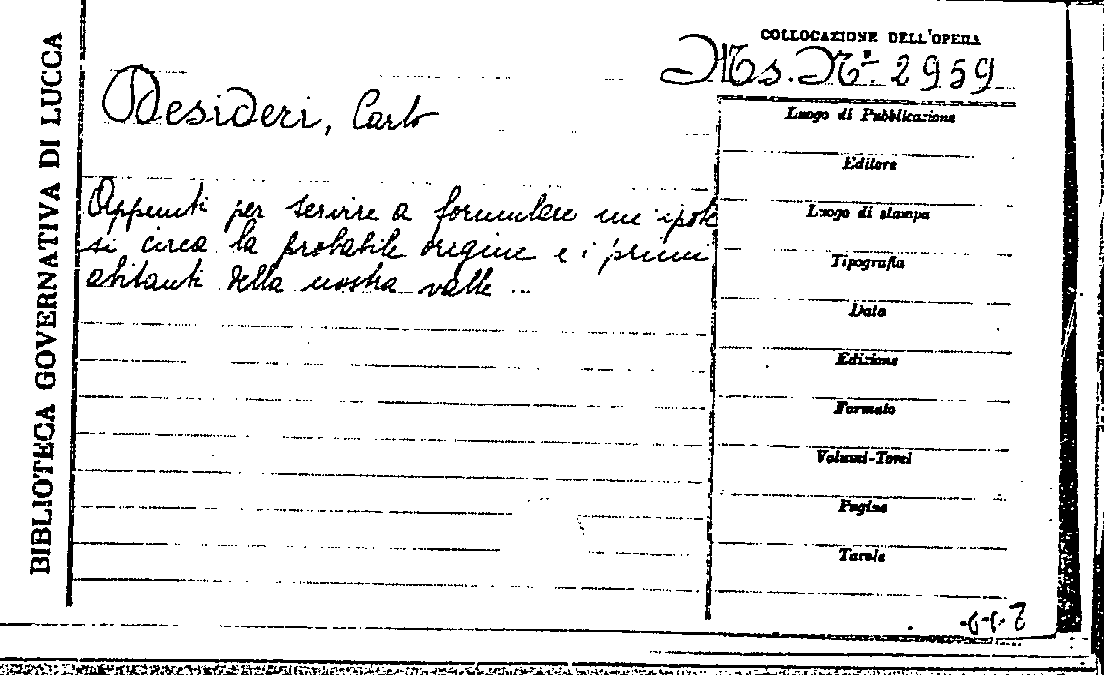 BIBLIOTECA GOVERNATIVA DI LUCCA
COLLOCAZIONE DELL'OPERA
Ms. Nº 2959
Desideri, Carlo
Appunti per servire a formulare un' ipote
si circa la probabile origine e i primi
abitanti della nostra valle ..
Luogo di Pubblicazione
Editore
Luogo di stampa
Tipografia
Data
Edizione
Formato
Volumi-Tomi
Pagine
Tavole